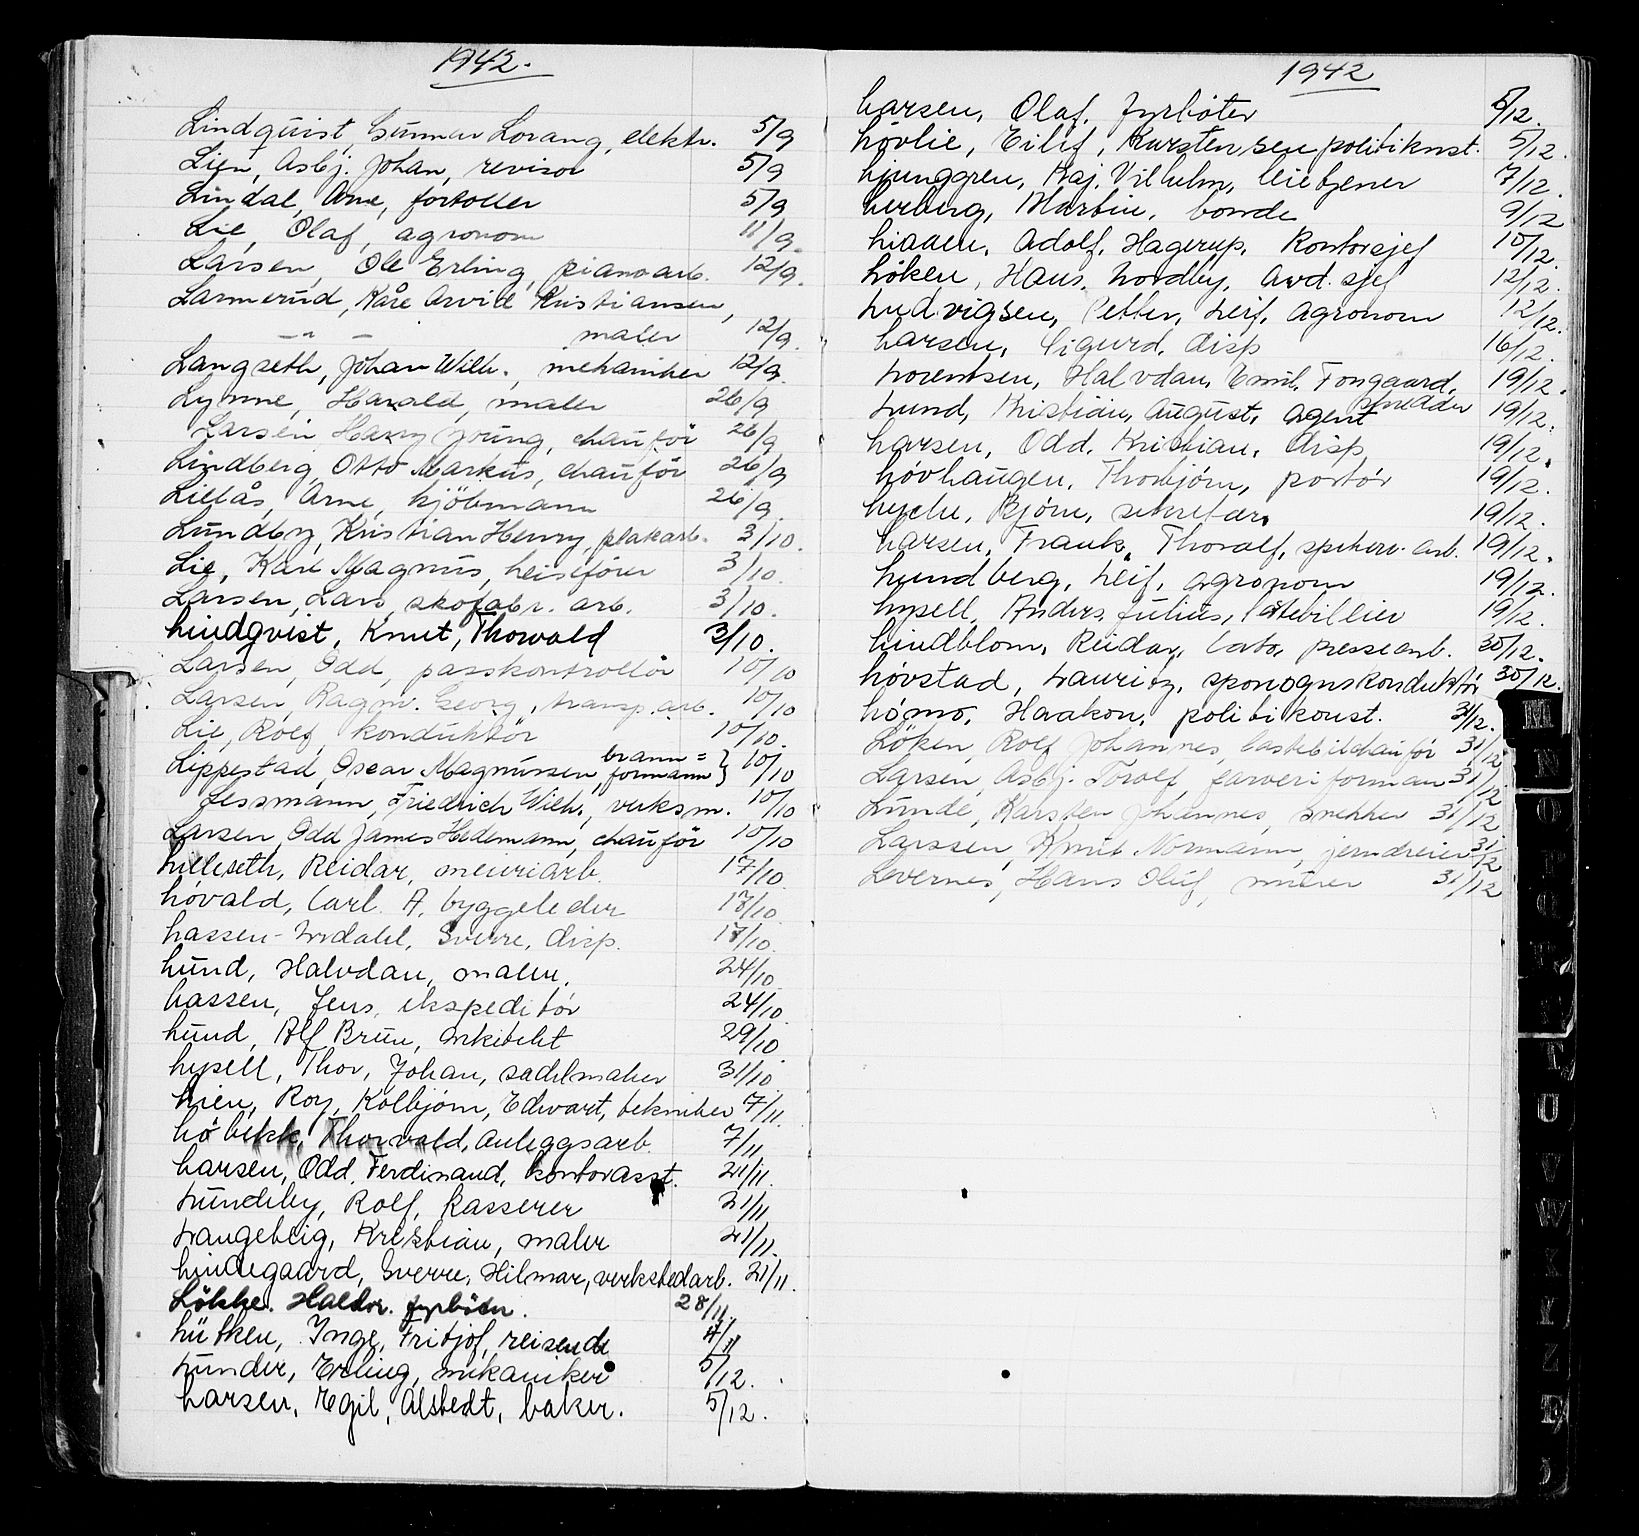 1942.
Lindquist, Gunnar Lorang, elektr. 5/9
Lien, Asbj. Johan, revisor 5/9
Lindal, Arne, fortoller 5/9
Lie, Olaf, agronom 11/9.
Larsen, Ole Erling, pianoarb. 12/9.
Larmerud, Kåre Arvid Kristiansen,
—"— maler 12/9.
Langseth, Johan Wilh., mekaniker 12/9.
Lynne, Harald, maler 26/9
Larsen Harry Joung, chauför 26/9
Lindberg, Otto Markus, chauför 26/9
Lillås, Arne, kjöbmann 26/9
Lundby, Kristian Henry, platearb. 3/10.
Lie, Kåre Magnus, heisefører 3/10.
Larsen, Lars, skofabr. arb. 3/10.
Lindqvist, Knut, Thorvald 3/10.
Larsen, Odd, passkontrollör 10/10
Larsen, Ragnv. Georg, transp.arb. 10/10
Lie, Rolf, konduktör 10/10.
Lippestad, Oscar Magnussen, brann=formann } 10/10
Lessmann, Friedrich Wilh., verksm. 10/10
Larsen, Odd James Hedemann, chauför 10/10
Lilleseth, Reidar, meieriarb. 17/10.
Lövald, Carl. A. byggeleder 17/10.
Lassen-Urdahl, Sverre, disp. 17/10.
Lund, Halvdan, maler. 24/10.
Lassen, Jens, ekspeditör 24/10.
Lund, Alf Brun, arkitekt 29/10.
Lysell, Thor, Johan, sadelmaker 31/10.
Lien, Roy, Kolbjörn, Edvart, tekniker 7/11.
Löbekk, Thorvald, Anleggsarb. 7/11
Larsen, Odd. Ferdinand, kontorasst. 21/11.
Lundeby, Rolf, kasserer 21/11
Langeteig, Kristian, maler 21/11.
Lindegaard, Sverre, Hilmar, verkstedarb. 21/11.
Lökke. Haldor. fyrböter. 28/11.
Lütken, Inge, Fritjof, reisende
Lunder, Erling, mekaniker 5/12.
Larsen, Egil, Alstedt, baker. 5/12.
1942
Larsen, Olaf, fyrböter 5/12.
Lövlie, Eilif, Karstensen politikonst. 5/12.
Ljunggren, Kaj. Vilhelm, leietjener 7/12.
Lerberg, Martin, bonde 9/12
Liaaen, Adolf, Hagerup, Kontorsjef 10/12.
Löken, Hans. Nordby, Avd. sjef 12/12.
Ludvigsen, Petter, Leif, Agronom 12/12.
Larsen, Sigurd, disp 16/12.
Lorentsen, Halvdan, Emil, Fongaard, skredder 19/12.
Lund, Kristian, August, Agent 19/12.
Larsen, Odd, Kristian, disp, 19/12.
Lövhaugen, Thorbjörn, portör 19/12.
Lyche, Björn, sekretær. 19/12.
Larsen, Frank, Thoralf, spiherv. arb. 19/12.
Lundberg, Leif, agronom 19/12.
Lysell, Anders, Julius, 19/12.
Lindblom, Reidar, Carlo, pressearb. 30/12.
Lövstad, Lauritz, sporvognskonduktör 30/12.
Lömo, Haakon, politikonst. 31/12.
Löken, Rolf Johannes, lastebilchauför 31/12
Larsen, Asbj. Torolf, farveriforman 31/12
Lunde, Karsten Johannes, snekker 31/12
Larssen, Knut Normann, jerndreier 31/12
Levernes, Hans Oluf, murer 31/12
M
N
O
P
T
U
V
W
X
Y
Z